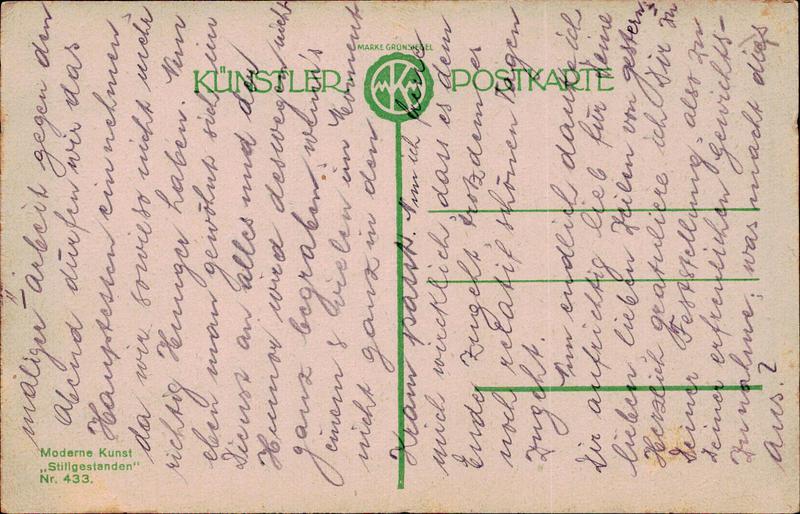 MARKE GRÜNSIEGEL
KÜNSTLER POSTKARTE
MKK
Moderne Kunst
„Stillgestanden"
Nr. 433.
mäliger Arbeit gegen den
Abend dürfen wir das
Hauptessen einnehmen
da wir sowieso nicht mehr
richtig Hunger haben. Nun
eben man gewöhnt sich im
Dienst an alles und der
Humor wird deswegen nicht
ganz begraben, wenn's
einem & vielen im Moment
nicht ganz in den
Kram passt. Nun ich
mich wirklich, dass es dem
Ende zugeht, trotzdem es
noch relativ schönen Tagen
zugeht.
Nun endlich danke ich
Dir aufrichtig lieb für Deine
lieben lieben Zeilen von gestern.
Herzlich gratuliere ich Dir zu
Deiner Feststellung, also zu
Deiner erfreulichen Gewichts-
Zunahme; was macht dies
aus.?